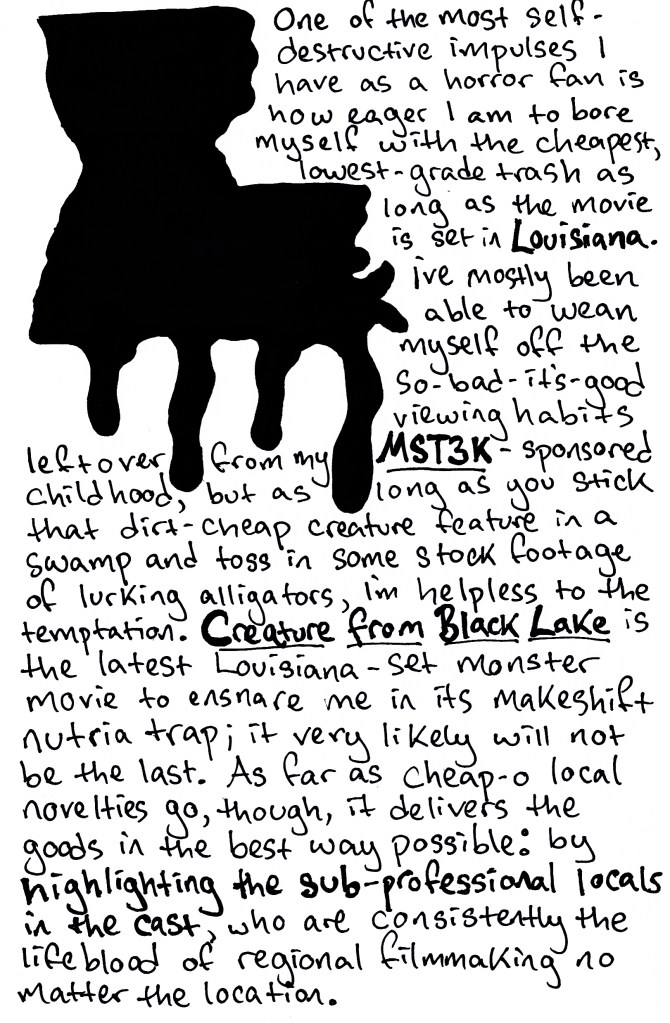 One of the most self-
destructive impulses I
have as a horror fan is
how eager I am to bore
myself with the cheapest,
lowest-grade trash as
long as the movie
is set in Louisiana.
i've mostly been
able to wean
myself off the
so-bad-it's-good
viewing habits
leftover from my MST3K-sponsored
childhood, but as long as you stick
that dirt-cheap creature feature in a
swamp and toss in some stock footage
of lurking alligators, i'm helpless to the
temptation. Creature from Black Lake is
the latest Louisiana-set monster
movie to ensnare me in its makeshift
nutria trap; it very likely will not
be the last. As far as cheap-o local
novelties go, though, it delivers the
goods in the best way possible: by
highlighting the sub-professional locals
in the cast, who are consistently the
lifeblood of regional filmmaking no
matter the location.